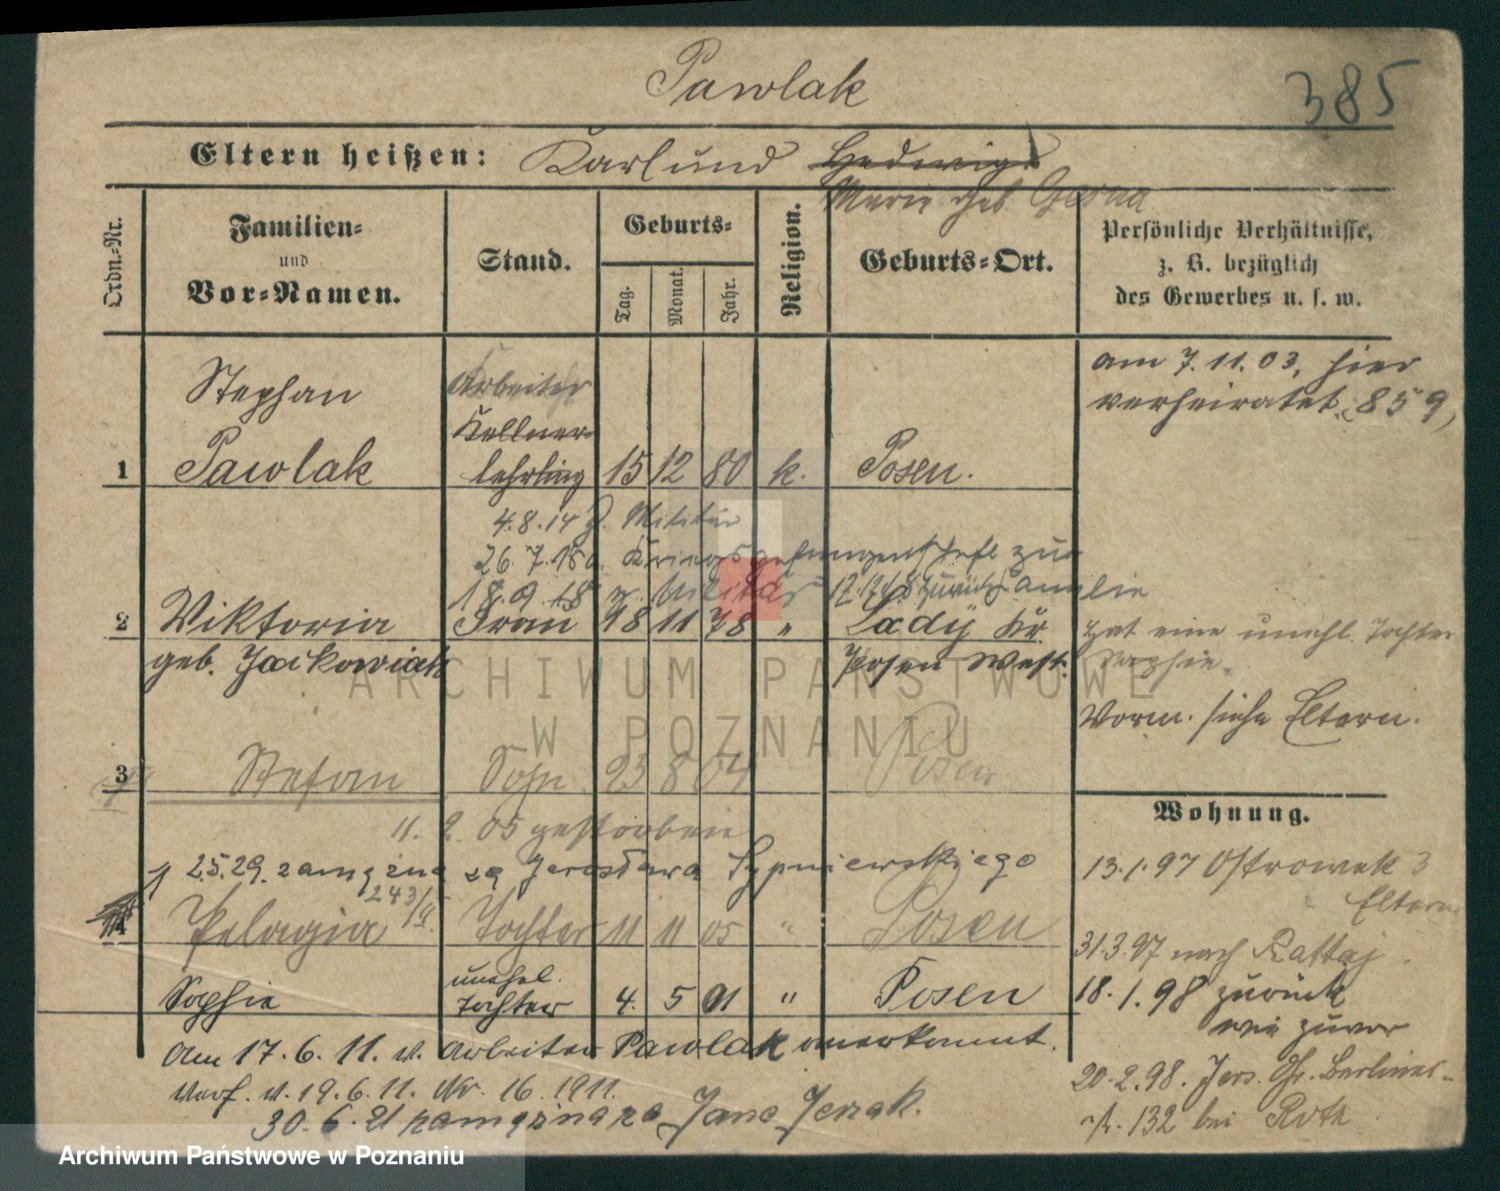 Pawlak
385
Eltern heißen: Karl und Hedwig
Marie geb
Ordn.-Nr.
Familien-
und
Vor-Namen.
Stand.
Geburts-
Tag.
Monat.
Jahr.
Religion.
Geburts-Ort.
Persönliche Verhältnisse,
z. B. bezüglich
des Gewerbes u. s. w.
Stephan
Arbeiter
Kellner
am 7.11.03, hier
verheiratet. 859,
1 Pawlak lehrling 15 12 80 k. Posen.
4.8.14 z. Militär
26.7.18 a. Kriegsgefangenschaft zur
18.9.18 z. Militär 17.12.18 zurück
2 Viktoria Frau 18 11 78 " Lady Kr.
geb. Jackowiak Posen West.
Hat eine unehl. Tochter
Sophie.
Vorm. siehe Eltern.
3 Stefan Sohn 23 8 04 Posen
11. 05 gestorben
2.5.29. zamężna za Jarosława Sypniewskiego
243/
4 Pelagia Tochter 11 11 05 " Posen
Sophie unehel. Tochter 4. 5 01 " Posen
Am 17.6.11. v. Arbeiter Pawlak anerkannt.
Verf. v. 19.6.11. Nr. 16.1911.
30.6.21 zamężna za Jana Jerzak.
Wohnung.
13.1.97 Ostrowek 3
Eltern
31.3.97 nach Rattaj
18.1.98 zurück
wie zuvor
20.2.98. Jers. Gr. Berliner-
132 bei Roth
ARCHIWUM PAŃSTWOWE
W POZNANIU
Archiwum Państwowe w Poznaniu